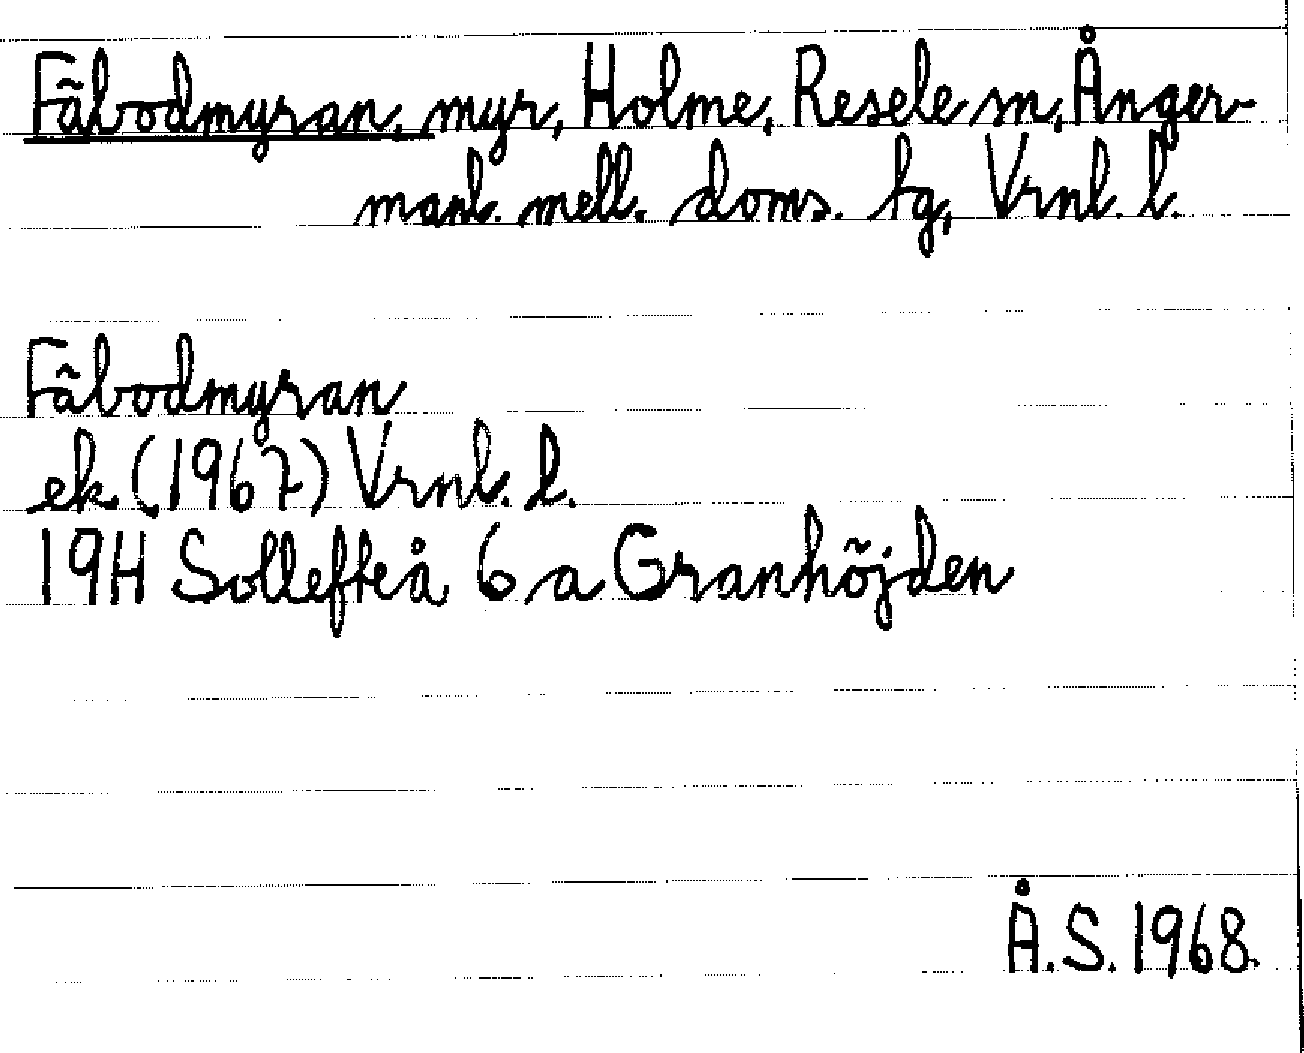 Fäbodmyran, myr, Holme, Resele sn, Ånger-
manl. mell. doms. tg, Vrnl. l.
Fäbodmyran
ek (1967) Vrnl. l.
19H Sollefteå 6a Granhöjden
Å.S. 1968.